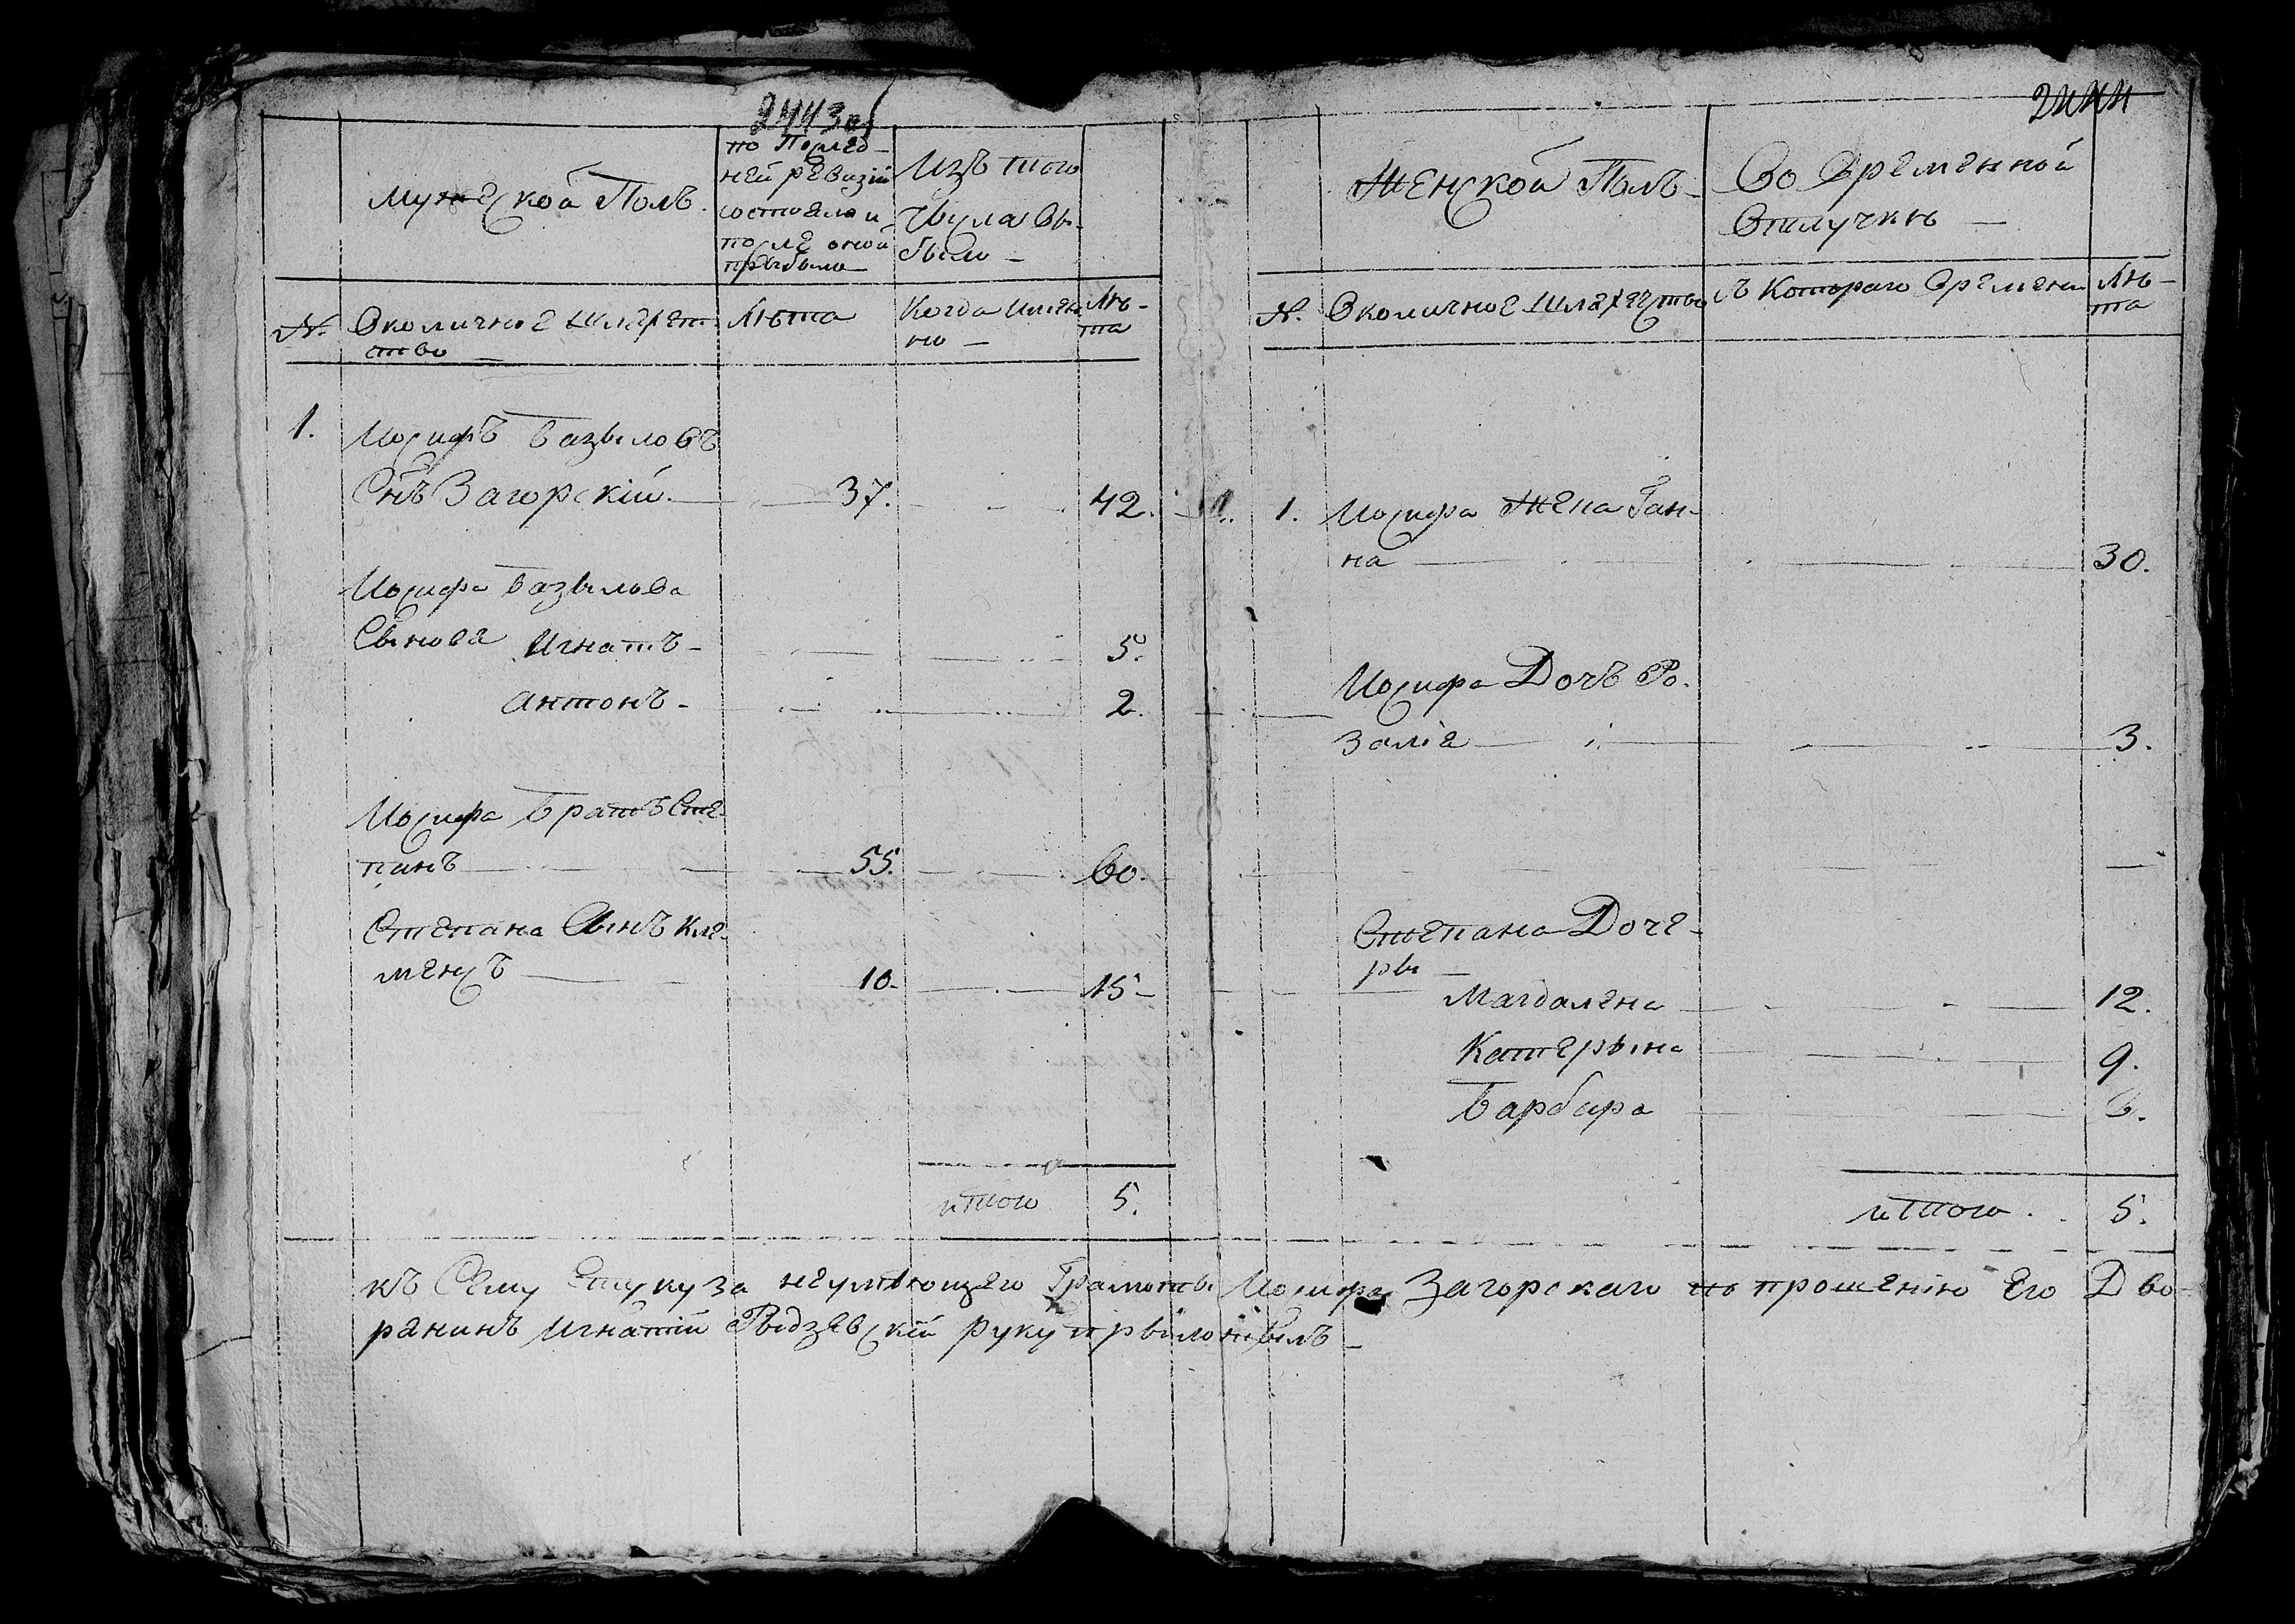 2443об
Мужеской Полъ.
по Послед-
ней ревизіи
состояло и
после оной
прыбыло
Изъ того
Числа вы-
было -
№. Околичное Шляхет-
ство
Лѣта
Когда имен-
но -
Лѣ-
та
1.
Иосифъ Базыловъ
Снъ Загорскій. 37. 42.
Иосифа Базылова
Сынове Игнатъ - 5.
Антонъ - 2.
Иосифа Братъ Сте-
панъ 55. 60.
Степана Сынъ Кле-
менсъ 10- 15-
итого 5.
2444
Женской Полъ -
Во Временной
Отлучкѣ -
№. Околичное Шляхетство
съ Котораго Времени
Лѣ-
та
1. Иосифа Жена Ган-
на 30.
Иосифа Дочъ Ро-
заліе 3.
Степана Доче-
ры
Магдалена 12.
Катерына 9.
Барбара 6.
итого. 5.
къ Сему Спуску за неумѣющего Грамоты Иосифа Загорскаго по прошенію Его Дво-
ранинъ Игнатій Рыдзевскій руку прыложылъ -